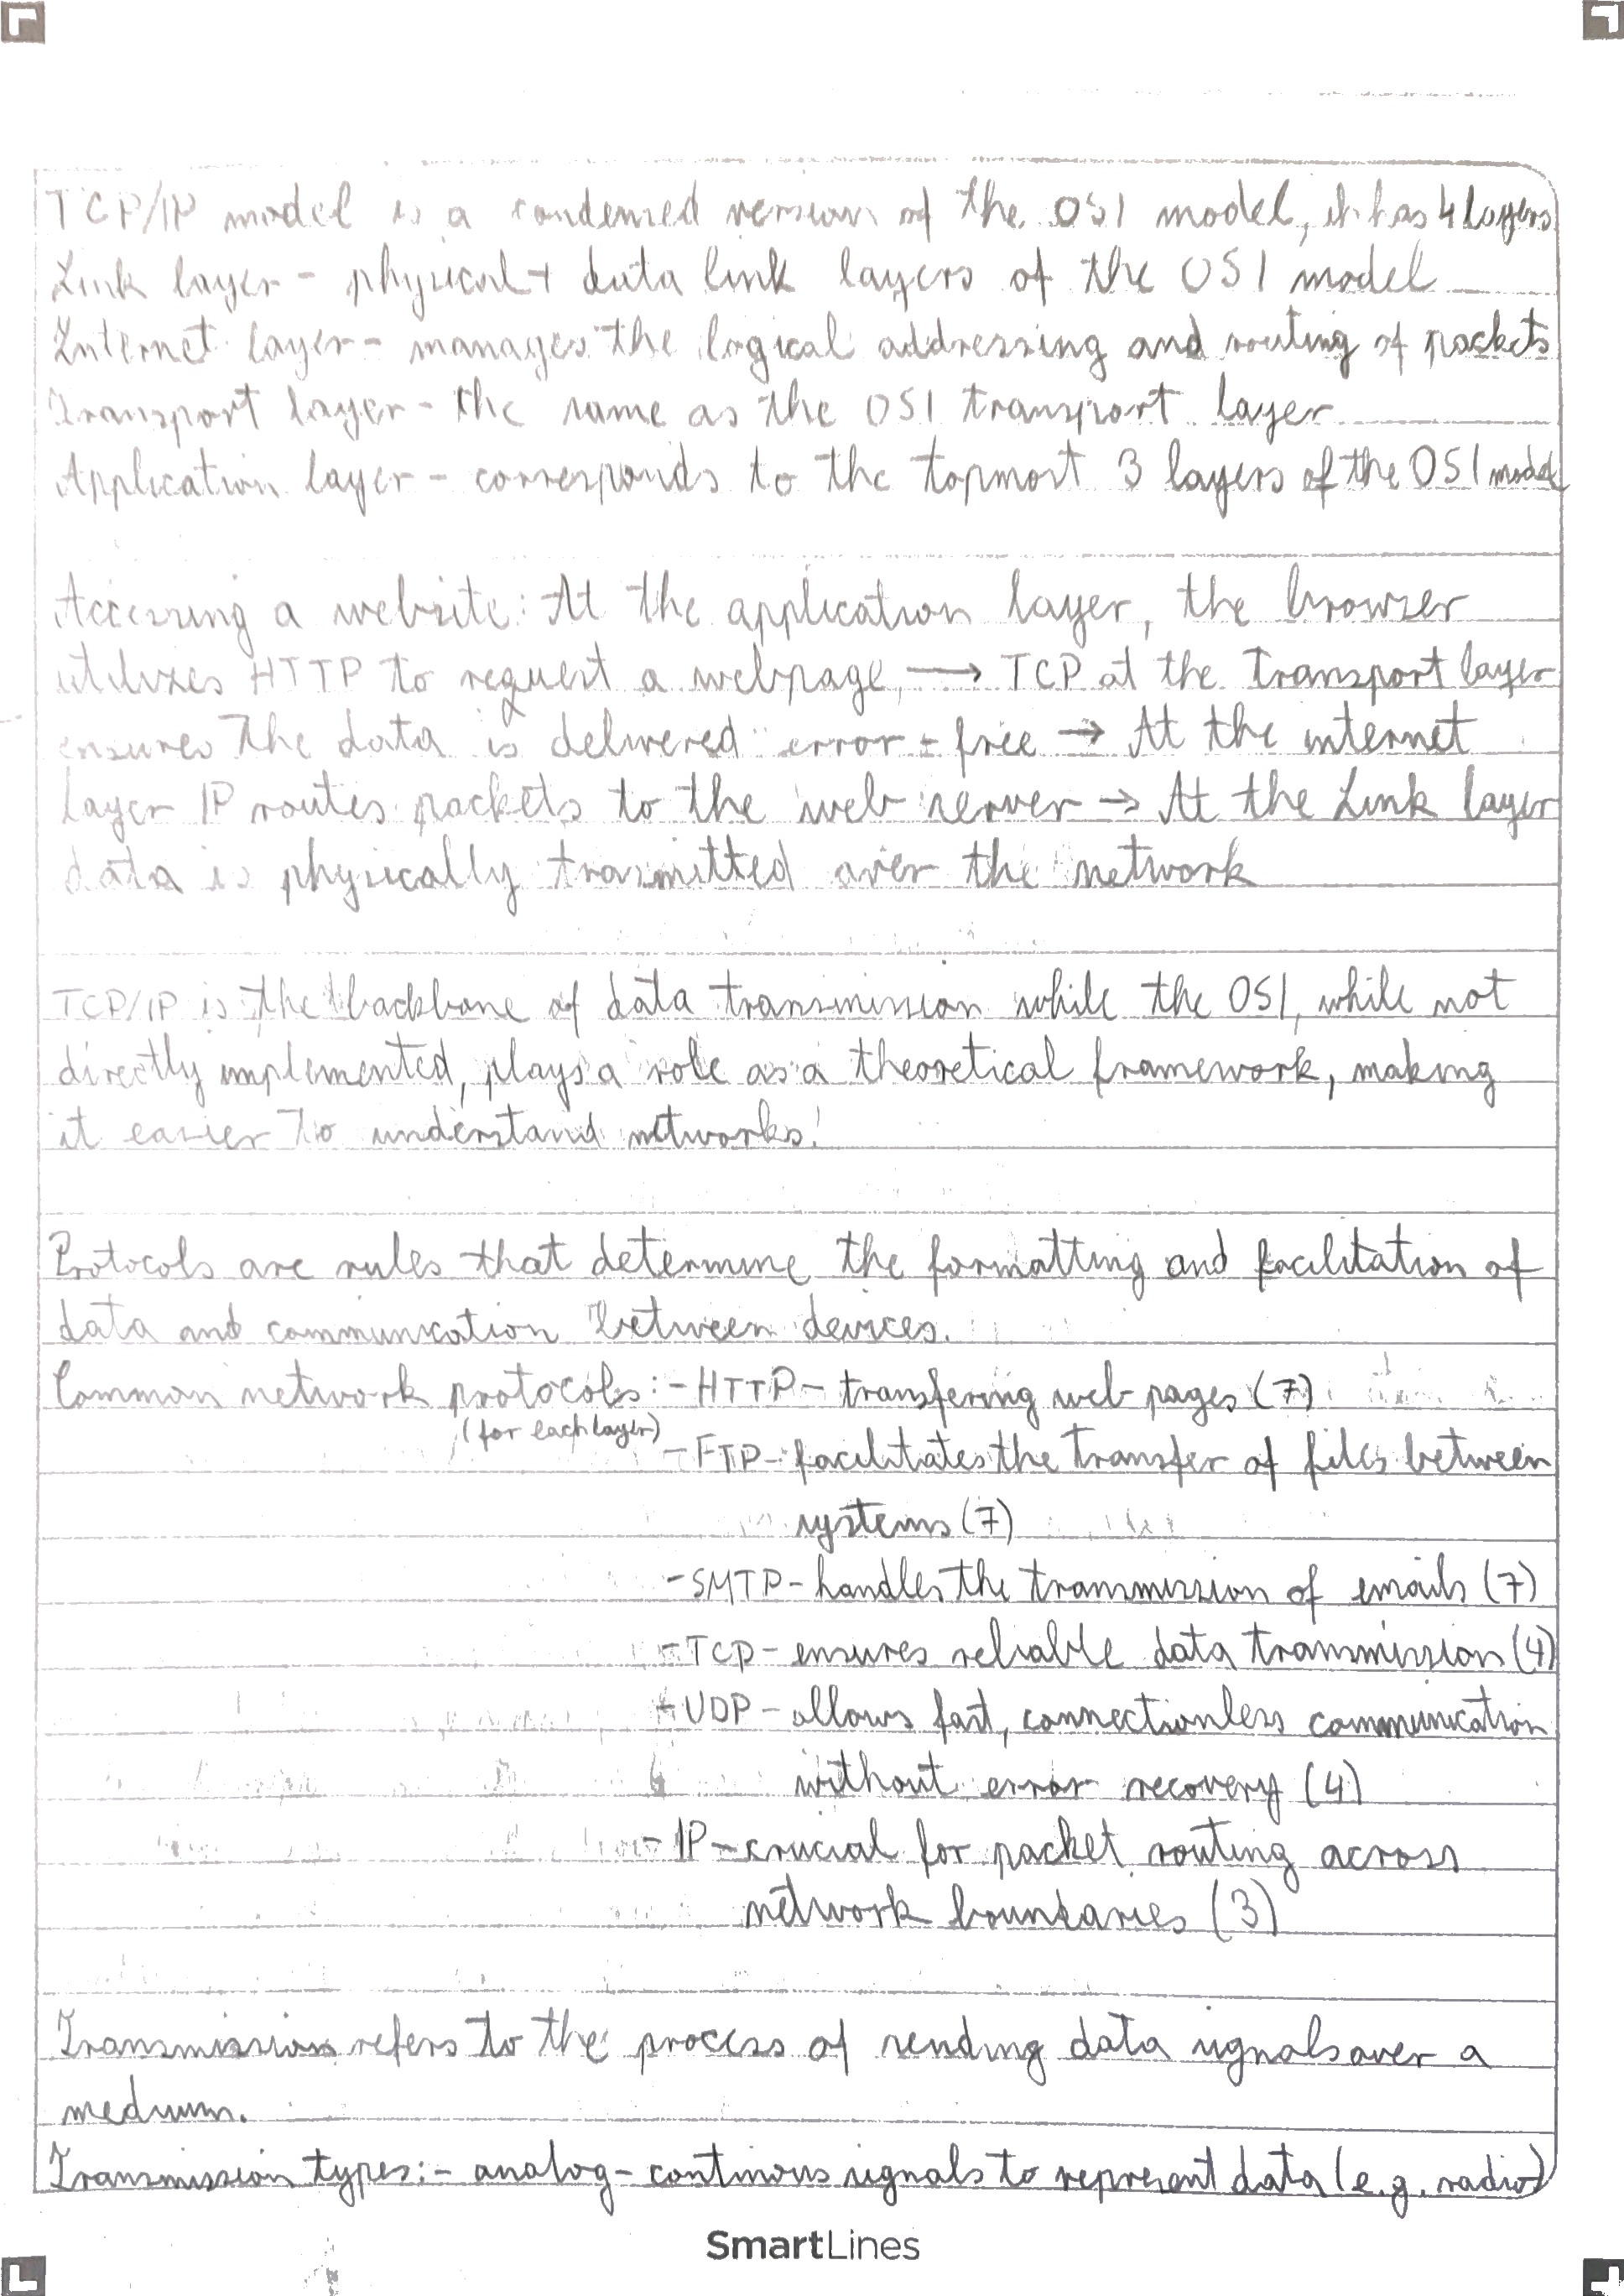 TCP/IP model is a condensed version of the OSI model, it has 4 layers
Link layer - physical + data link layers of the OSI model
Internet layer - manages the logical addressing and routing of packets
Transport layer - the same as the OSI transport layer
Application layer - corresponds to the topmost 3 layers of the OSI model
Accessing a website: At the application layer, the browser
utilizes HTTP to request a webpage → TCP at the transport layer
ensures the data is delivered error-free → At the internet
layer IP routes packets to the web server → At the Link layer
data is physically trasmitted over the network
TCP/IP is the backbone of data transmission while the OSI, while not
directly implemented, plays a role as a theoretical framework, making
it easier to understand networks!
Protocols are rules that determine the formatting and facilitation of
data and communication between devices.
Common network protocols: - HTTP - transfering web pages (7)
(for each layer)
- FTP - facilitates the transfer of files between
systems (7)
- SMTP - handles the transmission of emails (7)
- TCP - ensures reliable data transmission (4)
- UDP - allows fast, connectionless communication
without error recovery (4)
- IP - crucial for packet routing across
network boundaries (3)
Transmission refers to the process of sending data signals over a
medium.
Transmission types: - analog - continous signals to represent data (e.g. radio)
SmartLines